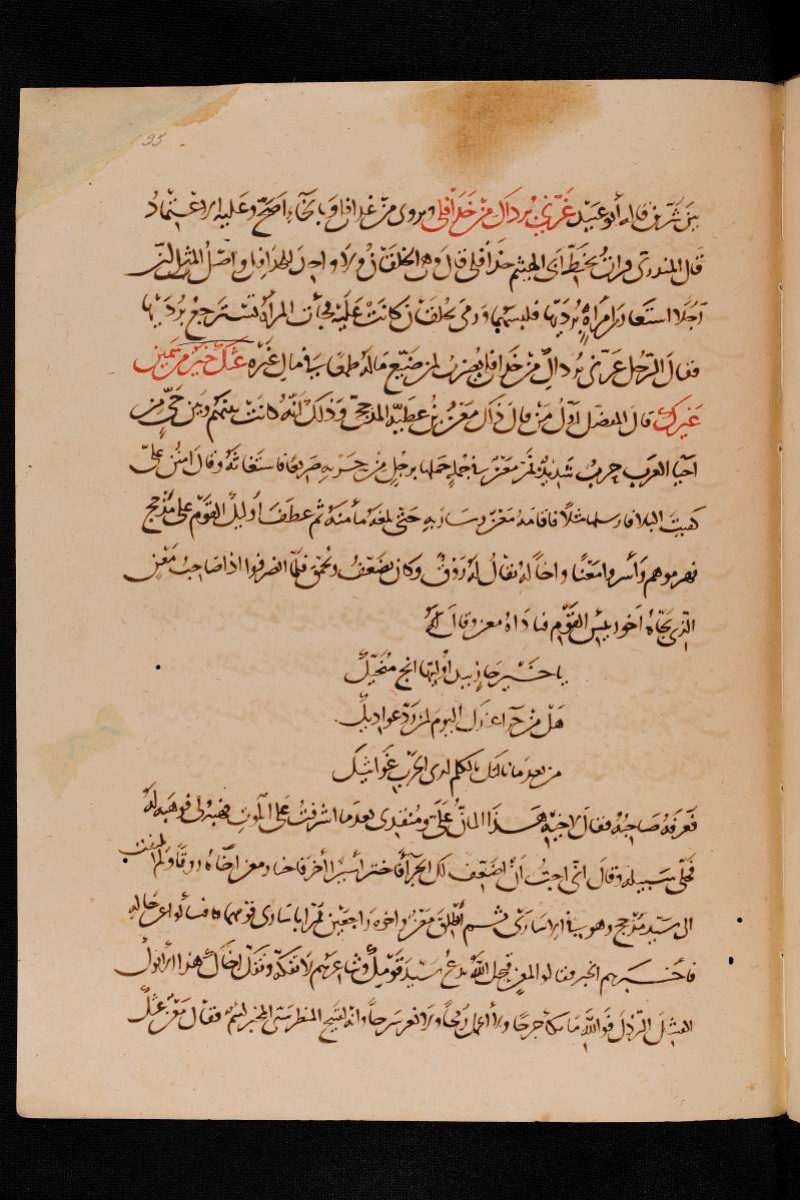 35
بين شرين قاله أبو عبيد غرني برداك من خدافلي ويروى من غدافل وبالخاء اصح وعليه الاعتماد
قال المنذري قرات بخط ابى الهيثم خدافلي قال وهى الخلقان ولا واحد لخدافل واصل المثل ان
رجلا استعار امراة برديها فلبسهما ورمى بخلقان كانت عليه فجأت المرأة تسترجع برديها
فقال الرجل غرني برداك من خدافلي يضرب لمن ضيع ماله طمعا في مال غيره غثك خير من سمين
غيرك قال المفضل أول من قال ذلك معن بن عطية المذحجي وذلك انه كانت بينهم وبين حى من
احيا العرب حرب شديدة فمر معن في حملة حملها برجل من حربه صريعا فاستغاثه وقال امنن على
كفيت البلا فارسلها مثلا فاقامه معن وسار به حتى بلغه مأمنه ثم عطف أوليك القوم على مذحج
فهزموهم وأسروا معنا واخا له يقال له روق وكان يضعف ويحمق فلما انصرفوا اذا صاحب معن
الذي نجاه اخو رييس القوم فناداه معن وقال له
يا خير جاز بيد اوليتها انج منجيك
هل من جزا عندك اليوم لمن رد عواديك
من بعد ما نالتك بالكلم لدى الحرب غواشيك
فعرفه صاحبه فقال لاخيه هذا المان على ومنقذى بعد ما اشرفت على الموت فهبه لى فوهبه له
فخلى سبيله وقال انى احب ان اضعف لك الجزا فاختر أسيرا آخر فاختار معن اخاه روقا ولم يلتفت
الى سيد مذحج وهو في الاسارى ثم انطلق معن واخوه راجعين فمرا باسارى قومهما فسألوا عن حاله
فاخبرهم الخبر فقالوا لمعن قبحك الله تدع سيد قومك وشاعرهم لا تفكه وتفك اخاك هذا الانوك
الفسل الرذل فوالله ما نكا جرحا ولا اعمل رمحا ولا ذعر سرحا وانه لقبيح المنظر سئ المخبر لئيم فقال معن غثك